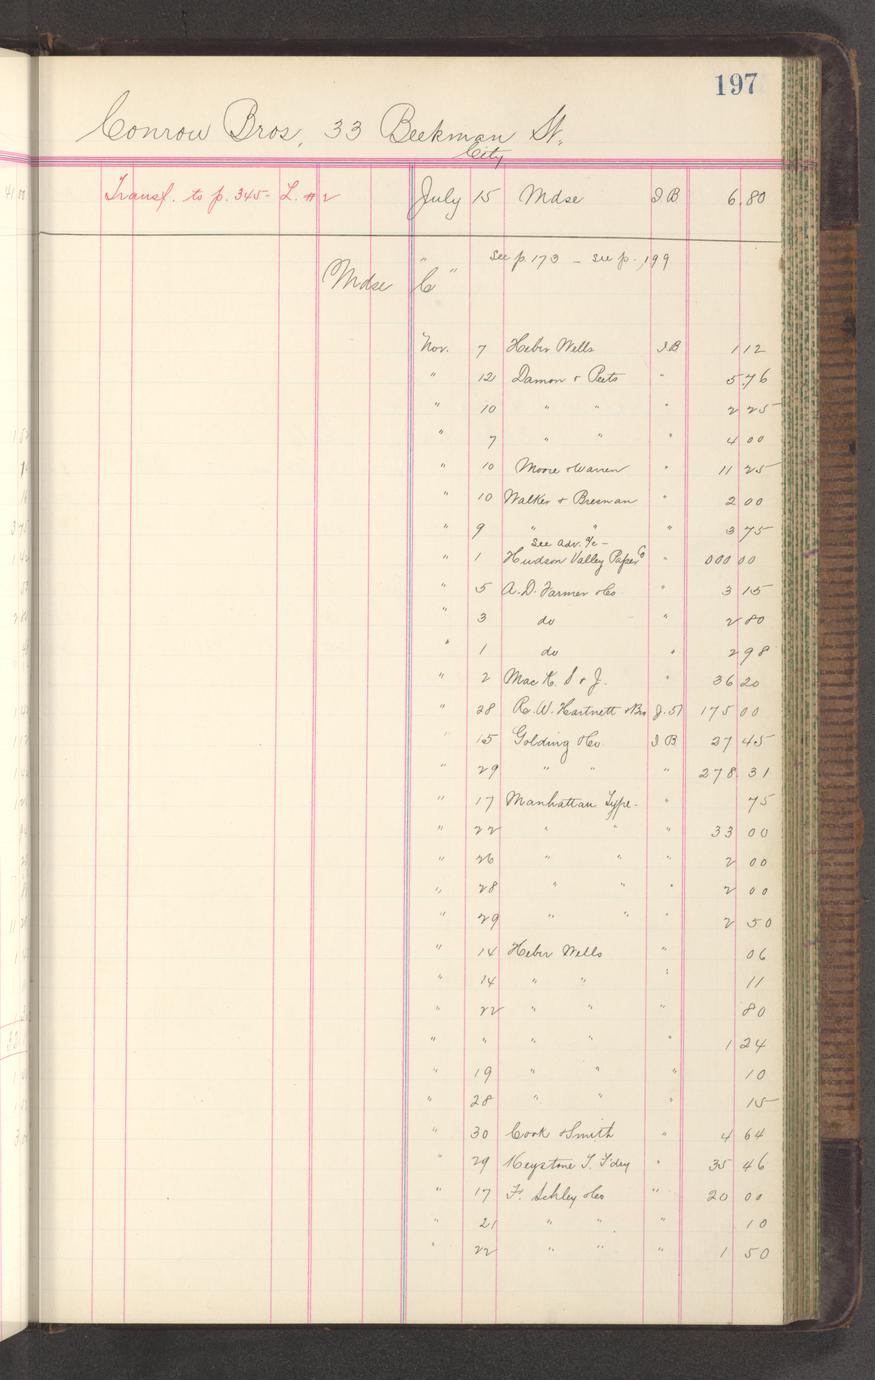 197
Conrow Bros, 33 Beekman St.
City
Transf. to p. 345- L. #2 July 15 Mdse I B 6.80
see p. 173 - see p. 199
Mdse "C"
Nov. 7 Heber Wells I B 1 12
" 12 Damon & Peets " 5.76
" 10 " " " 2 25
" 7 " " " 4 00
" 10 Moore & Warren " 11 25
" 10 Walker & Bresnan " 2 00
" 9 " " " 3 75
see adv. a/c -
" 1 Hudson Valley Paper Co " 000 00
" 5 A. D. Farmer & Co. " 3 15
" 3 do " 2 80
" 1 do " 2 98
" 2 Mac K. S & J. " 36 20
" 28 R. W. Hartnett & Bro J. 51 175 00
" 15 Golding & Co. I B 27 45
" 29 " " " 278 31
" 17 Manhattan Type- " 75
" 22 " " " 33 00
" 26 " " " 2 00
" 28 " " " 2 00
" 29 " " 2 50
" 14 Heber Wells " 06
" 14 " " " 11
" 22 " " " 80
" " " " " 1 24
" 19 " " " 10
" 28 " " " 15
" 30 Cook & Smith " 4 64
" 29 Keystone T. F'dry " 35 46
" 17 F. & Co " 20 00
" 21 " " " 10
" 22 " " " 1 50